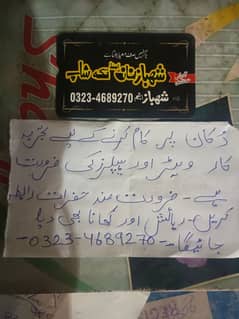 شہباز نان ٹک شاپ
شہباز 0323-4689270
دکان پر کام کرنے کے لیے تجربہ
کار ویٹر اور ہیلپرز کی ضرورت
ہے۔ ضرورت مند حضرات رابطہ
کریں۔ رہائش اور کھانا بھی دیا
جائیگا۔ 0323-4689270